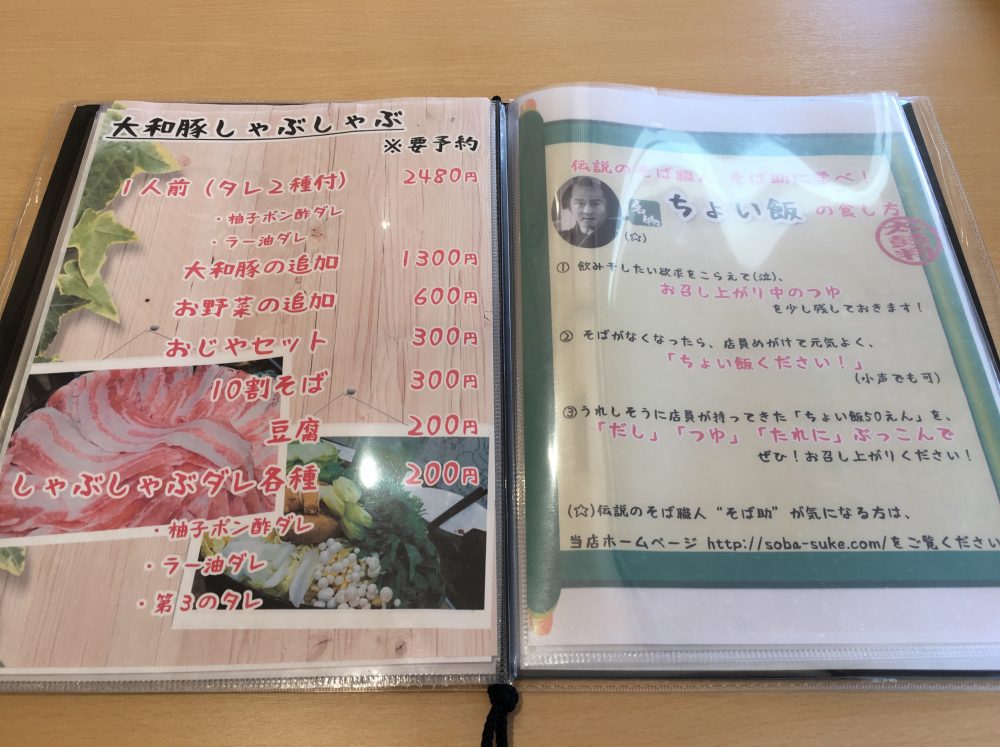 大和豚しゃぶしゃぶ
※要予約
1人前（タレ2種付） 2480円
・柚子ポン酢ダレ
・ラー油ダレ
大和豚の追加 1300円
お野菜の追加 600円
おじやセット 300円
10割そば 300円
豆腐 200円
しゃぶしゃぶダレ各種 200円
・柚子ポン酢ダレ
・ラー油ダレ
・第3のタレ
伝説のそば職人 そば助に学べ！
名物 ちょい飯 の食し方
(☆)
① 飲み干したい欲求をこらえて(泣)、
お召し上がり中のつゆ
を少し残しておきます！
② そばがなくなったら、店員めがけて元気よく、
「ちょい飯ください！」
(小声でも可)
③うれしそうに店員が持ってきた「ちょい飯50えん」を、
「だし」「つゆ」「たれに」ぶっこんで
ぜひ！お召し上がりください！
(☆)伝説のそば職人“そば助”が気になる方は、
当店ホームページ http://soba-suke.com/をご覧ください